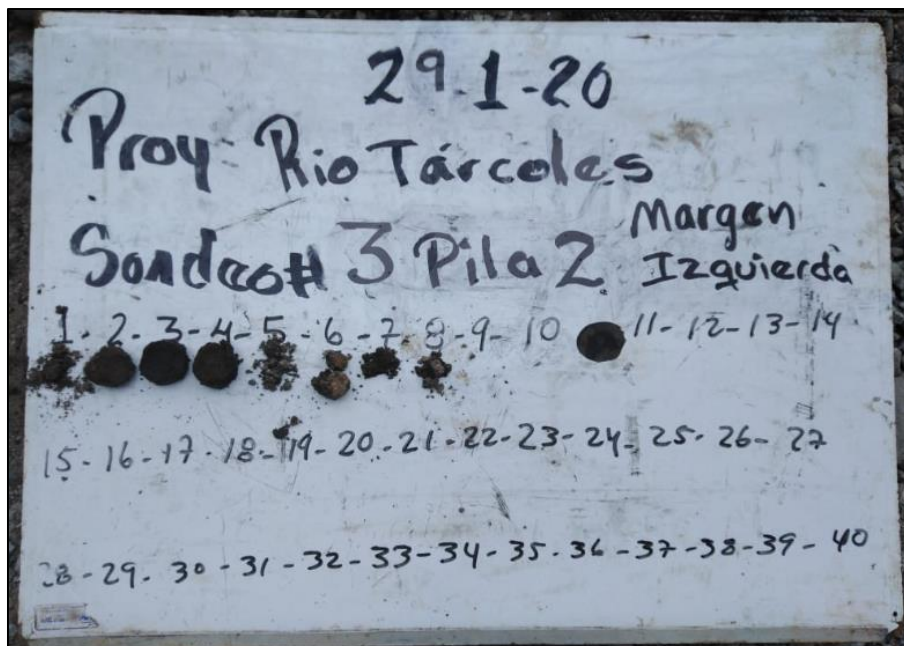 29-1-20
Proy Rio Tárcoles
Sondeo# 3 Pila 2 Margen Izquierda
1-2-3-4-5-6-7-8-9-10 11-12-13-14
15-16-17-18-19-20-21-22-23-24-25-26-27
28-29-30-31-32-33-34-35-36-37-38-39-40